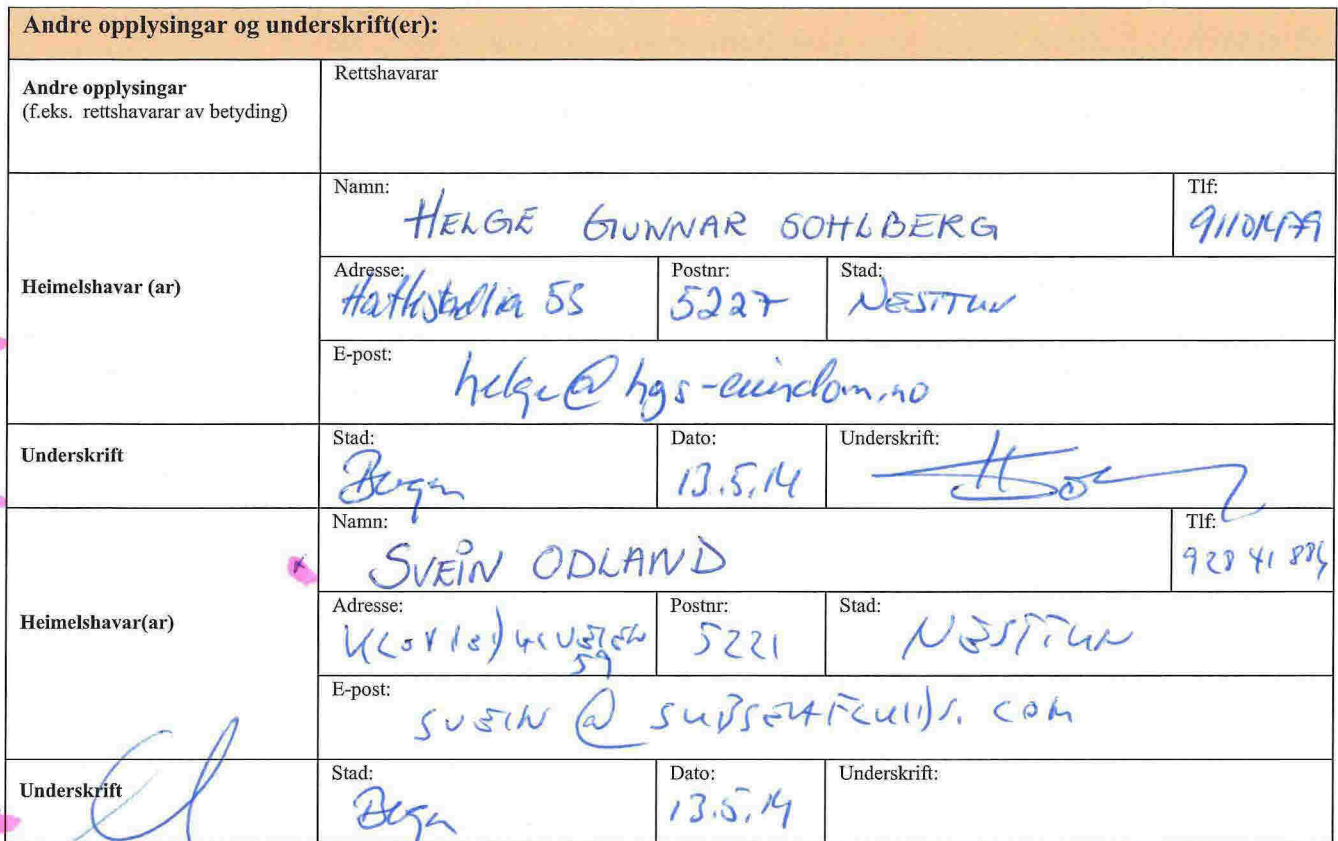 Andre opplysingar og underskrift(er):
Andre opplysingar
(f.eks. rettshavarar av betyding)
Rettshavarar
Heimelshavar (ar)
Namn:
HELGE GUNNAR SOHLBERG
Tlf:
Adresse:
55
Postnr:
5227
Stad:
NESTTUN
E-post:
helge@hgs-eiendom.no
Underskrift
Stad:
Bergen
Dato:
13.5.14
Underskrift:
Heimelshavar(ar)
Namn:
SVEIN ODLAND
Tlf:
928 41 884
Adresse:
59
Postnr:
5221
Stad:
NESTTUN
E-post:
SVEIN @ SUBSEAFLUIDS.COM
Underskrift
Stad:
Bergen
Dato:
13.5.14
Underskrift: